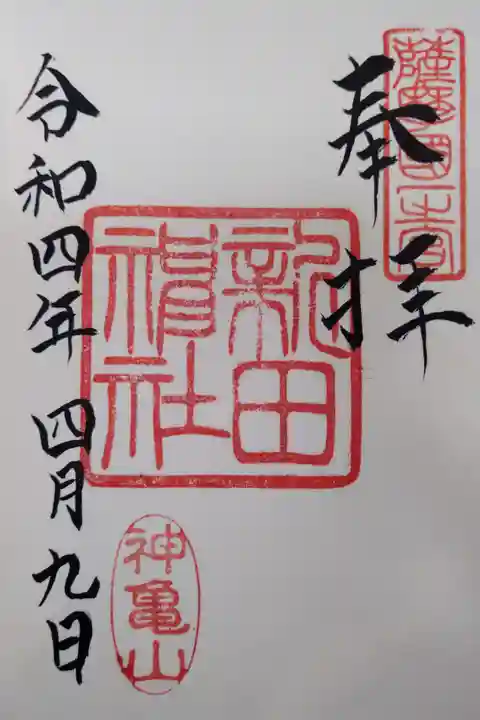 薩摩國一之宮
奉拝
新田
神社
神亀山
令和四年 四月九日